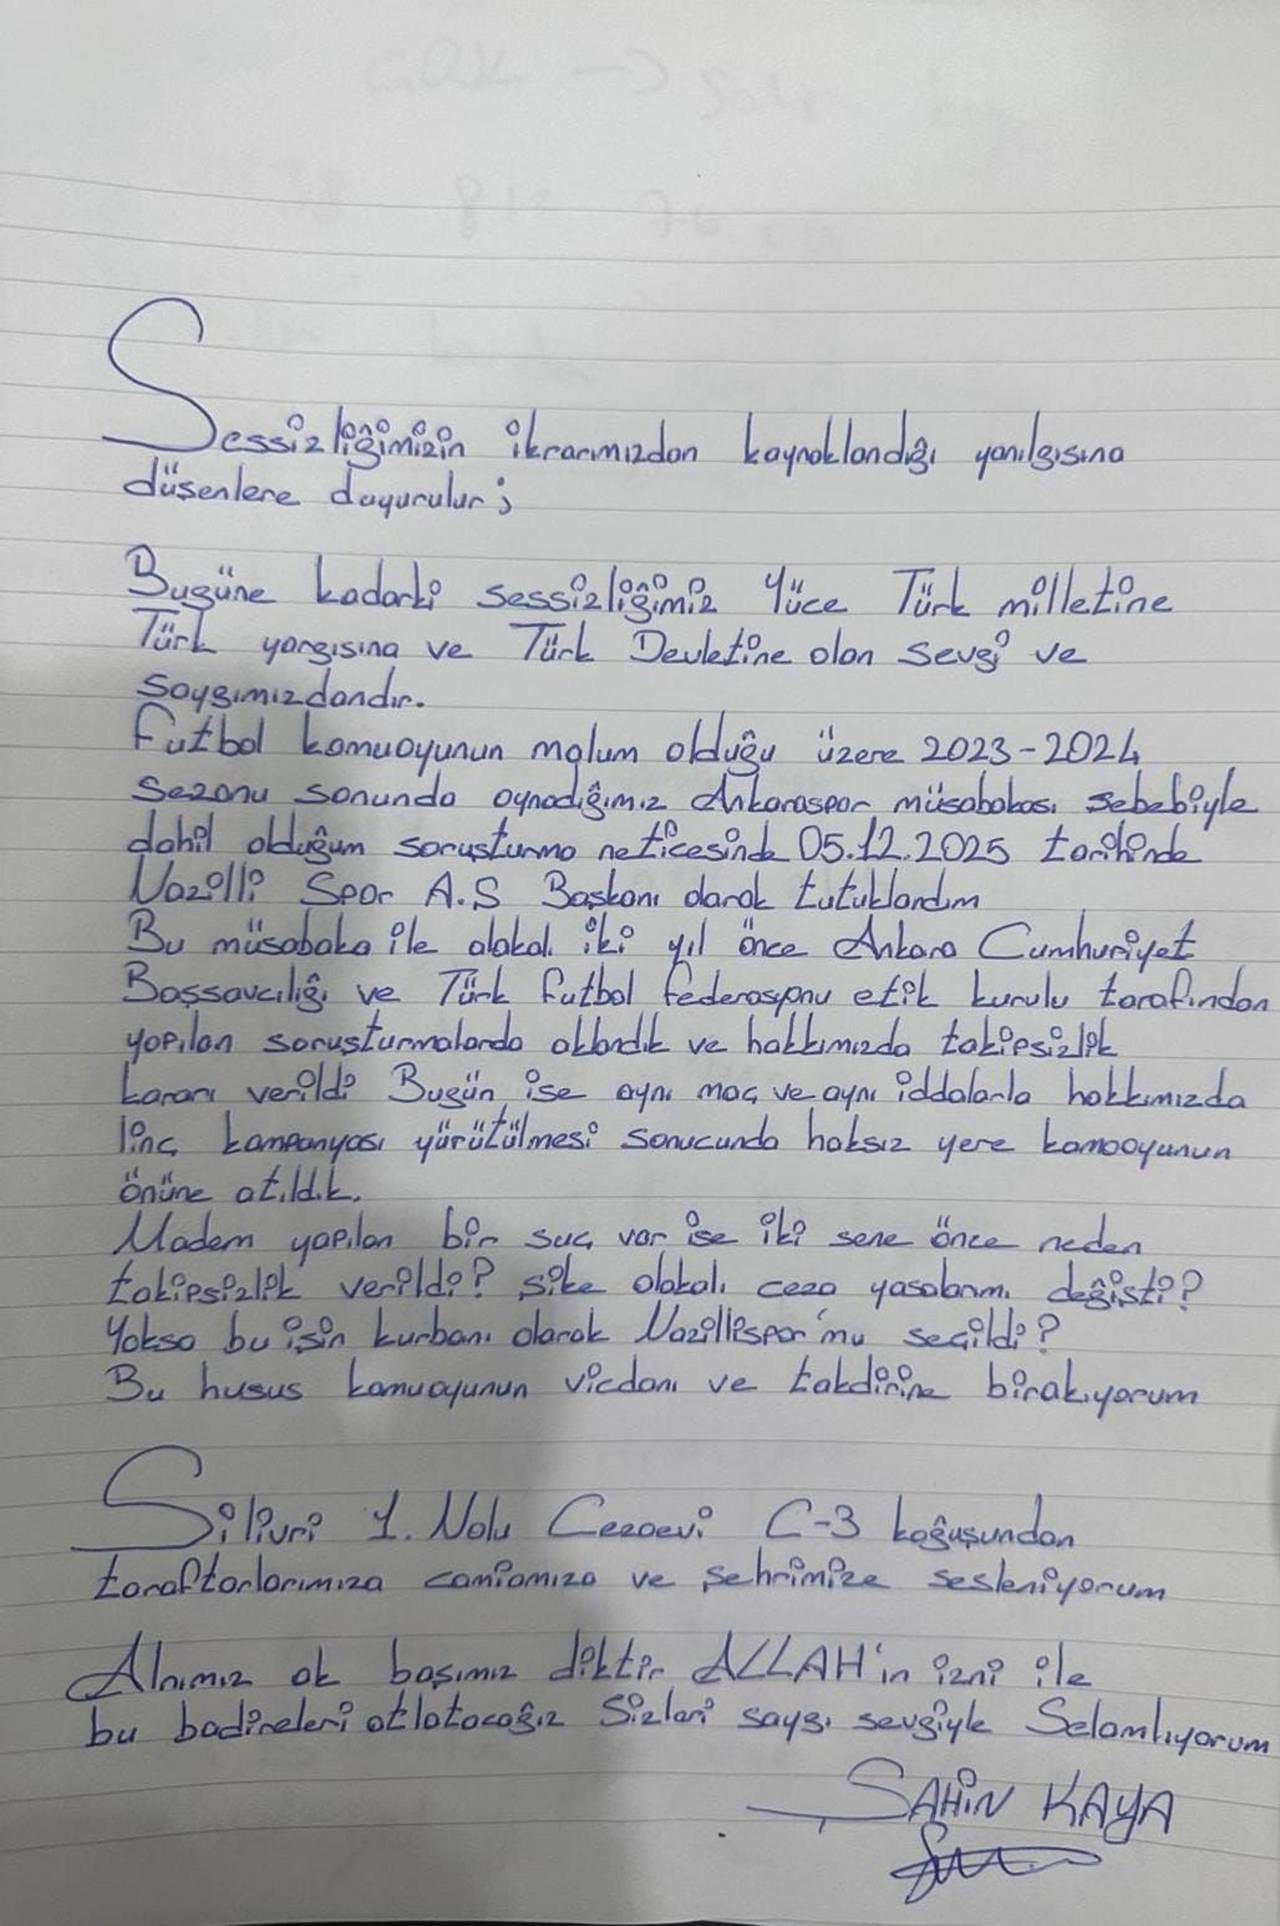 Sessizliğimizin ikrarımızdan kaynaklandığı yanılgısına
düşenlere duyurulur;
Bugüne kadarki sessizliğimiz Yüce Türk milletine
Türk yargısına ve Türk Devletine olan sevgi ve
saygımızdandır.
Futbol kamuoyunun malum olduğu üzere 2023-2024
sezonu sonunda oynadığımız Ankaraspor müsabakası sebebiyle
dahil olduğum soruşturma neticesinde 05.12.2025 tarihinde
Nazilli Spor A.S Başkanı olarak tutuklandım
Bu müsabaka ile alakalı iki yıl önce Ankara Cumhuriyet
Başsavcılığı ve Türk futbol federasyonu etik kurulu tarafından
yapılan soruşturmalarda aklandık ve hakkımızda takipsizlik
kararı verildi Bugün ise aynı maç ve aynı iddalarla hakkımızda
linç kampanyası yürütülmesi sonucunda haksız yere kamooyunun
önüne atıldık.
Madem yapılan bir suç var ise iki sene önce neden
takipsizlik verildi? şike alakalı ceza yasalarımı değişti?
Yoksa bu işin kurbanı olarak Nazillispor'mu seçildi?
Bu husus kamuoyunun vicdanı ve takdirine birakıyorum
Silivri 1. Nolu Cezaevi C-3 koğuşundan
taraftarlarımıza camiamıza ve şehrimize sesleniyorum
Alnımız ak başımız diktir ALLAH'in izni ile
bu badireleri atlatacağız Sizleri saygı sevgiyle Selamlıyorum
ŞAHİN KAYA